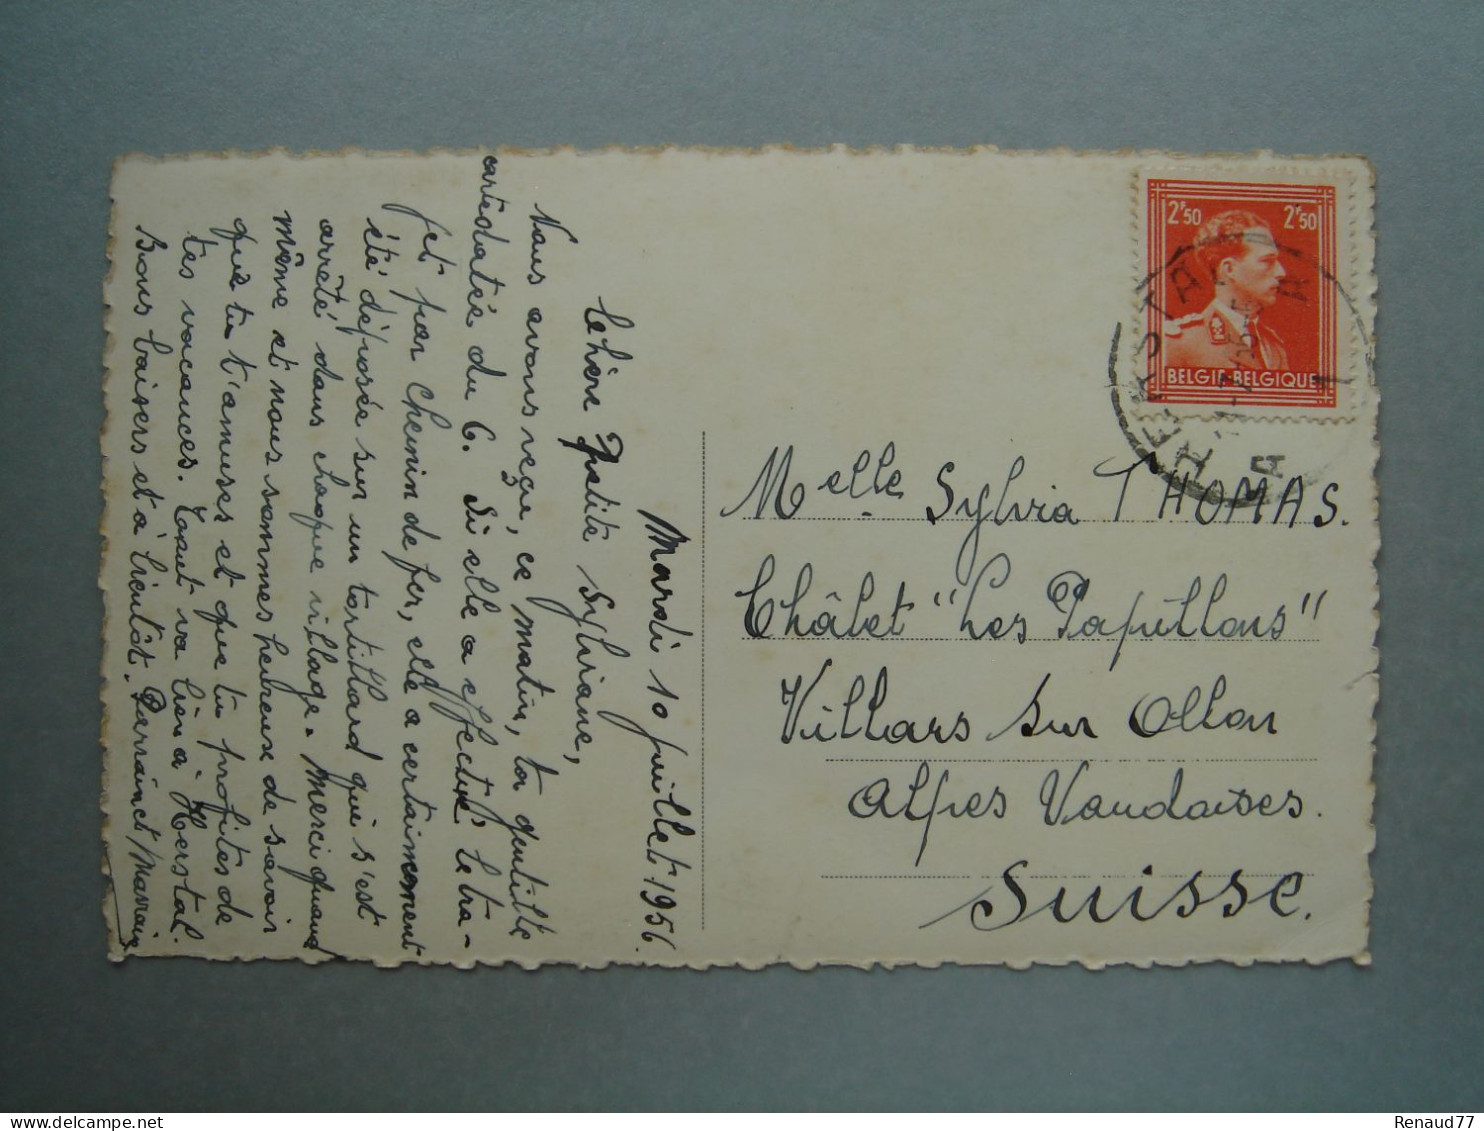 Mardi 10 juillet 1956.
Chère petite Sylviane,
Nous avons reçu, ce matin, ta gentille
carte datée du 6. Si elle a effectué le tra-
jet par chemin de fer, elle a certainement
été déposée sur un tortillard qui s'est
arrêté dans chaque village. Merci quand
même et nous sommes heureux de savoir
que tu t'amuses et que tu profites de
tes vacances. Tout va bien à Herstal.
Bons baisers et à bientôt. Parrain et Marraine
2F50 2F50
BELGIE-BELGIQUE
HERSTAL
A
Melle Sylvia THOMAS.
Châlet "Les Papillons"
Villars sur Ollon
Alpes Vaudoises.
Suisse.
delcampe.net
Renaud77